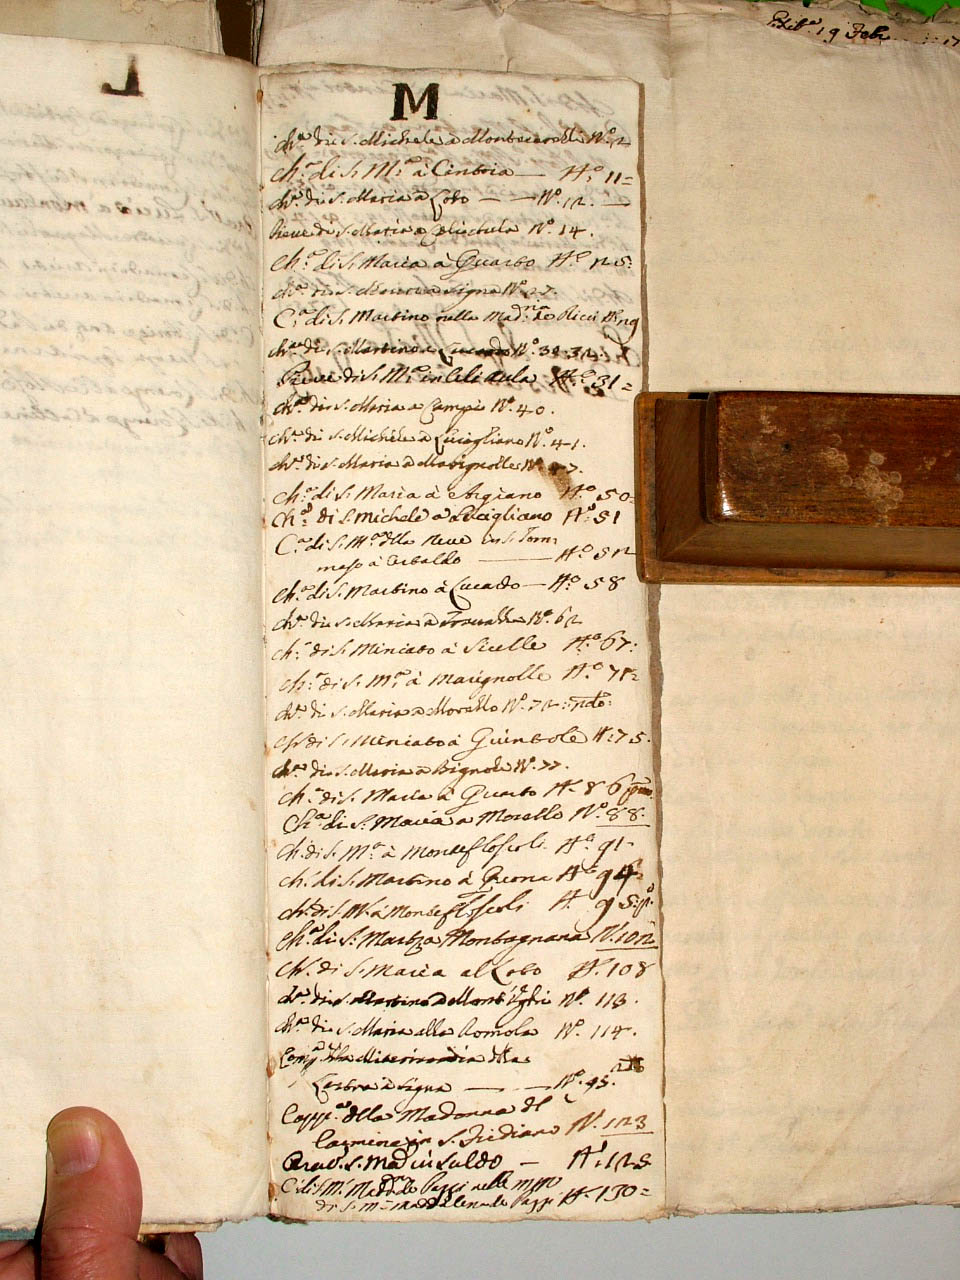 L
M
19 Feb
Ch.ª di S. Michele a N.º 2
Ch.ª di S. M.ª à Cintoia — N.º 11=
Ch.ª di S. Maria à Lobo — — N.º 12. —
Pieve di S. Maria a N.º 14.
Ch.ª di S. Maria à Quarto N.º 25:
Ch.ª di S. a Signa N.º 27.
C.ª di S. Martino nella Mad.na de Ricci N.º 29
Ch.ª di S. Martino a Lucardo N.º 30.
Pieve di S. M.ª in Celiaula N.º 31=
Ch.ª di S. Maria a Campi N.º 40.
Ch.ª di S. Michele à Lucigliano N.º 41.
Ch.ª di S. Maria à Marignolle N.º 47.
Ch.ª di S. Maria à Argiano N.º 50=
Ch.ª di S. Michele a Lucigliano N.º 51
C.ª di S. M.ª dlla Neve in S. Tom
maso à Certaldo ——— N.º 52
Ch.ª di S. Martino à Lucardo — N.º 58
Ch.ª di S. Maria a N.º 62
Ch.ª di S. Miniato à Sicelle N.º 67:
Ch.ª di S. M.ª à Marignolle N.º 71=
Ch.ª di S. Maria a Morello N.º 72
Ch.ª di S. Miniato à Quintole N. 75.
Ch.ª di S. Maria a Bignole N.º 77.
Ch.ª di S. Maria à Quarto N.º 86
Ch.ª di S. Maria a Morello N.º 88:
Ch. di S. M.ª à Montefloscoli N.º 91.
Ch. di S. Martino à N.º 94=
Ch. di S. M.ª à Montefloscoli N. 95. p.º
Ch.ª di S. Mart.º a Montagnana N.º 102
Ch. di S. Maria al Lobo N. 108
Ch.ª di S. Martino a N.º 113.
Ch.ª di S. Maria alla Romola N.º 114.
Comp.ª dlla Misericordia dlla
Lastra à Signa — — N.º 95.
Capp.ª dlla Madonna dl
Carmine in S. Frediano N. 123
S. Mad. in Saldo — N. 125
C. di S. M.ª Madd. de Pazzi nelle
di S. M.ª Maddalena de Pazzi N. 130=